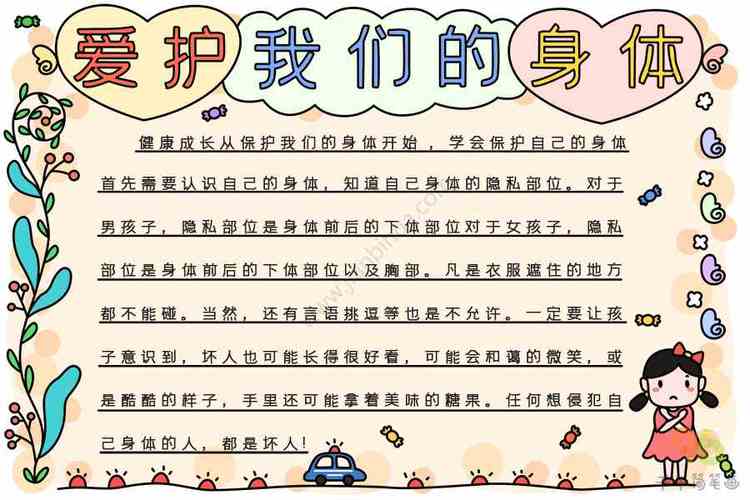 爱护我们的身体
健康成长从保护我们的身体开始，学会保护自己的身体
首先需要认识自己的身体，知道自己身体的隐私部位。对于
男孩子，隐私部位是身体前后的下体部位对于女孩子，隐私
部位是身体前后的下体部位以及胸部。凡是衣服遮住的地方
都不能碰。当然，还有言语挑逗等也是不允许。一定要让孩
子意识到，坏人也可能长得很好看，可能会和蔼的微笑，或
是酷酷的样子，手里还可能拿着美味的糖果。任何想侵犯自
己身体的人，都是坏人!
简笔画